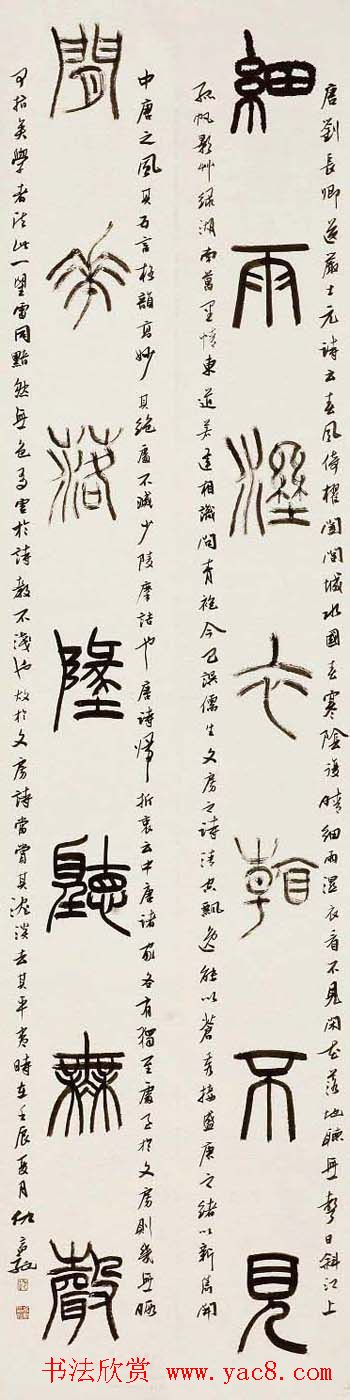 唐劉長卿送嚴士元詩云春風倚櫂闔閭城水國春寒陰復晴細雨溼衣看不見閑花落地聽無聲日斜江上
細雨溼衣看不見
孤帆影艸綠湖南萬里情東道若逢相識問青袍今已誤儒生文房之詩清空飄逸能以蒼秀接盛唐之緒以新雋開
中唐之風其五言極韻高妙其絕處不減少陵摩詰也唐詩歸折衷云中唐諸家各有獨至處予於文房則幾無瑕
閒花落墬聽無聲
可指矣學者法此一望雷同黯然無色為害於詩教不淺也故於文房詩當賞其淡去其平夷時在壬辰夏月仇高馳
书法欣赏 www.yac8.com